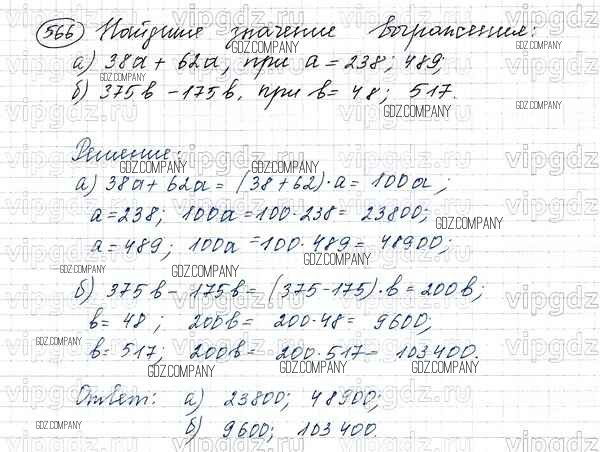 566 Найдите значение выражения:
а) 38a + 62a, при a = 238; 489;
б) 375b - 175b, при b = 48; 517.
Решение:
а) 38a + 62a = (38 + 62) · a = 100a;
a = 238; 100a = 100 · 238 = 23800;
a = 489; 100a = 100 · 489 = 48900;
б) 375b - 175b = (375 - 175) · b = 200b;
b = 48; 200b = 200 · 48 = 9600;
b = 517; 200b = 200 · 517 = 103400.
Ответ: а) 23800; 48900;
б) 9600; 103400.